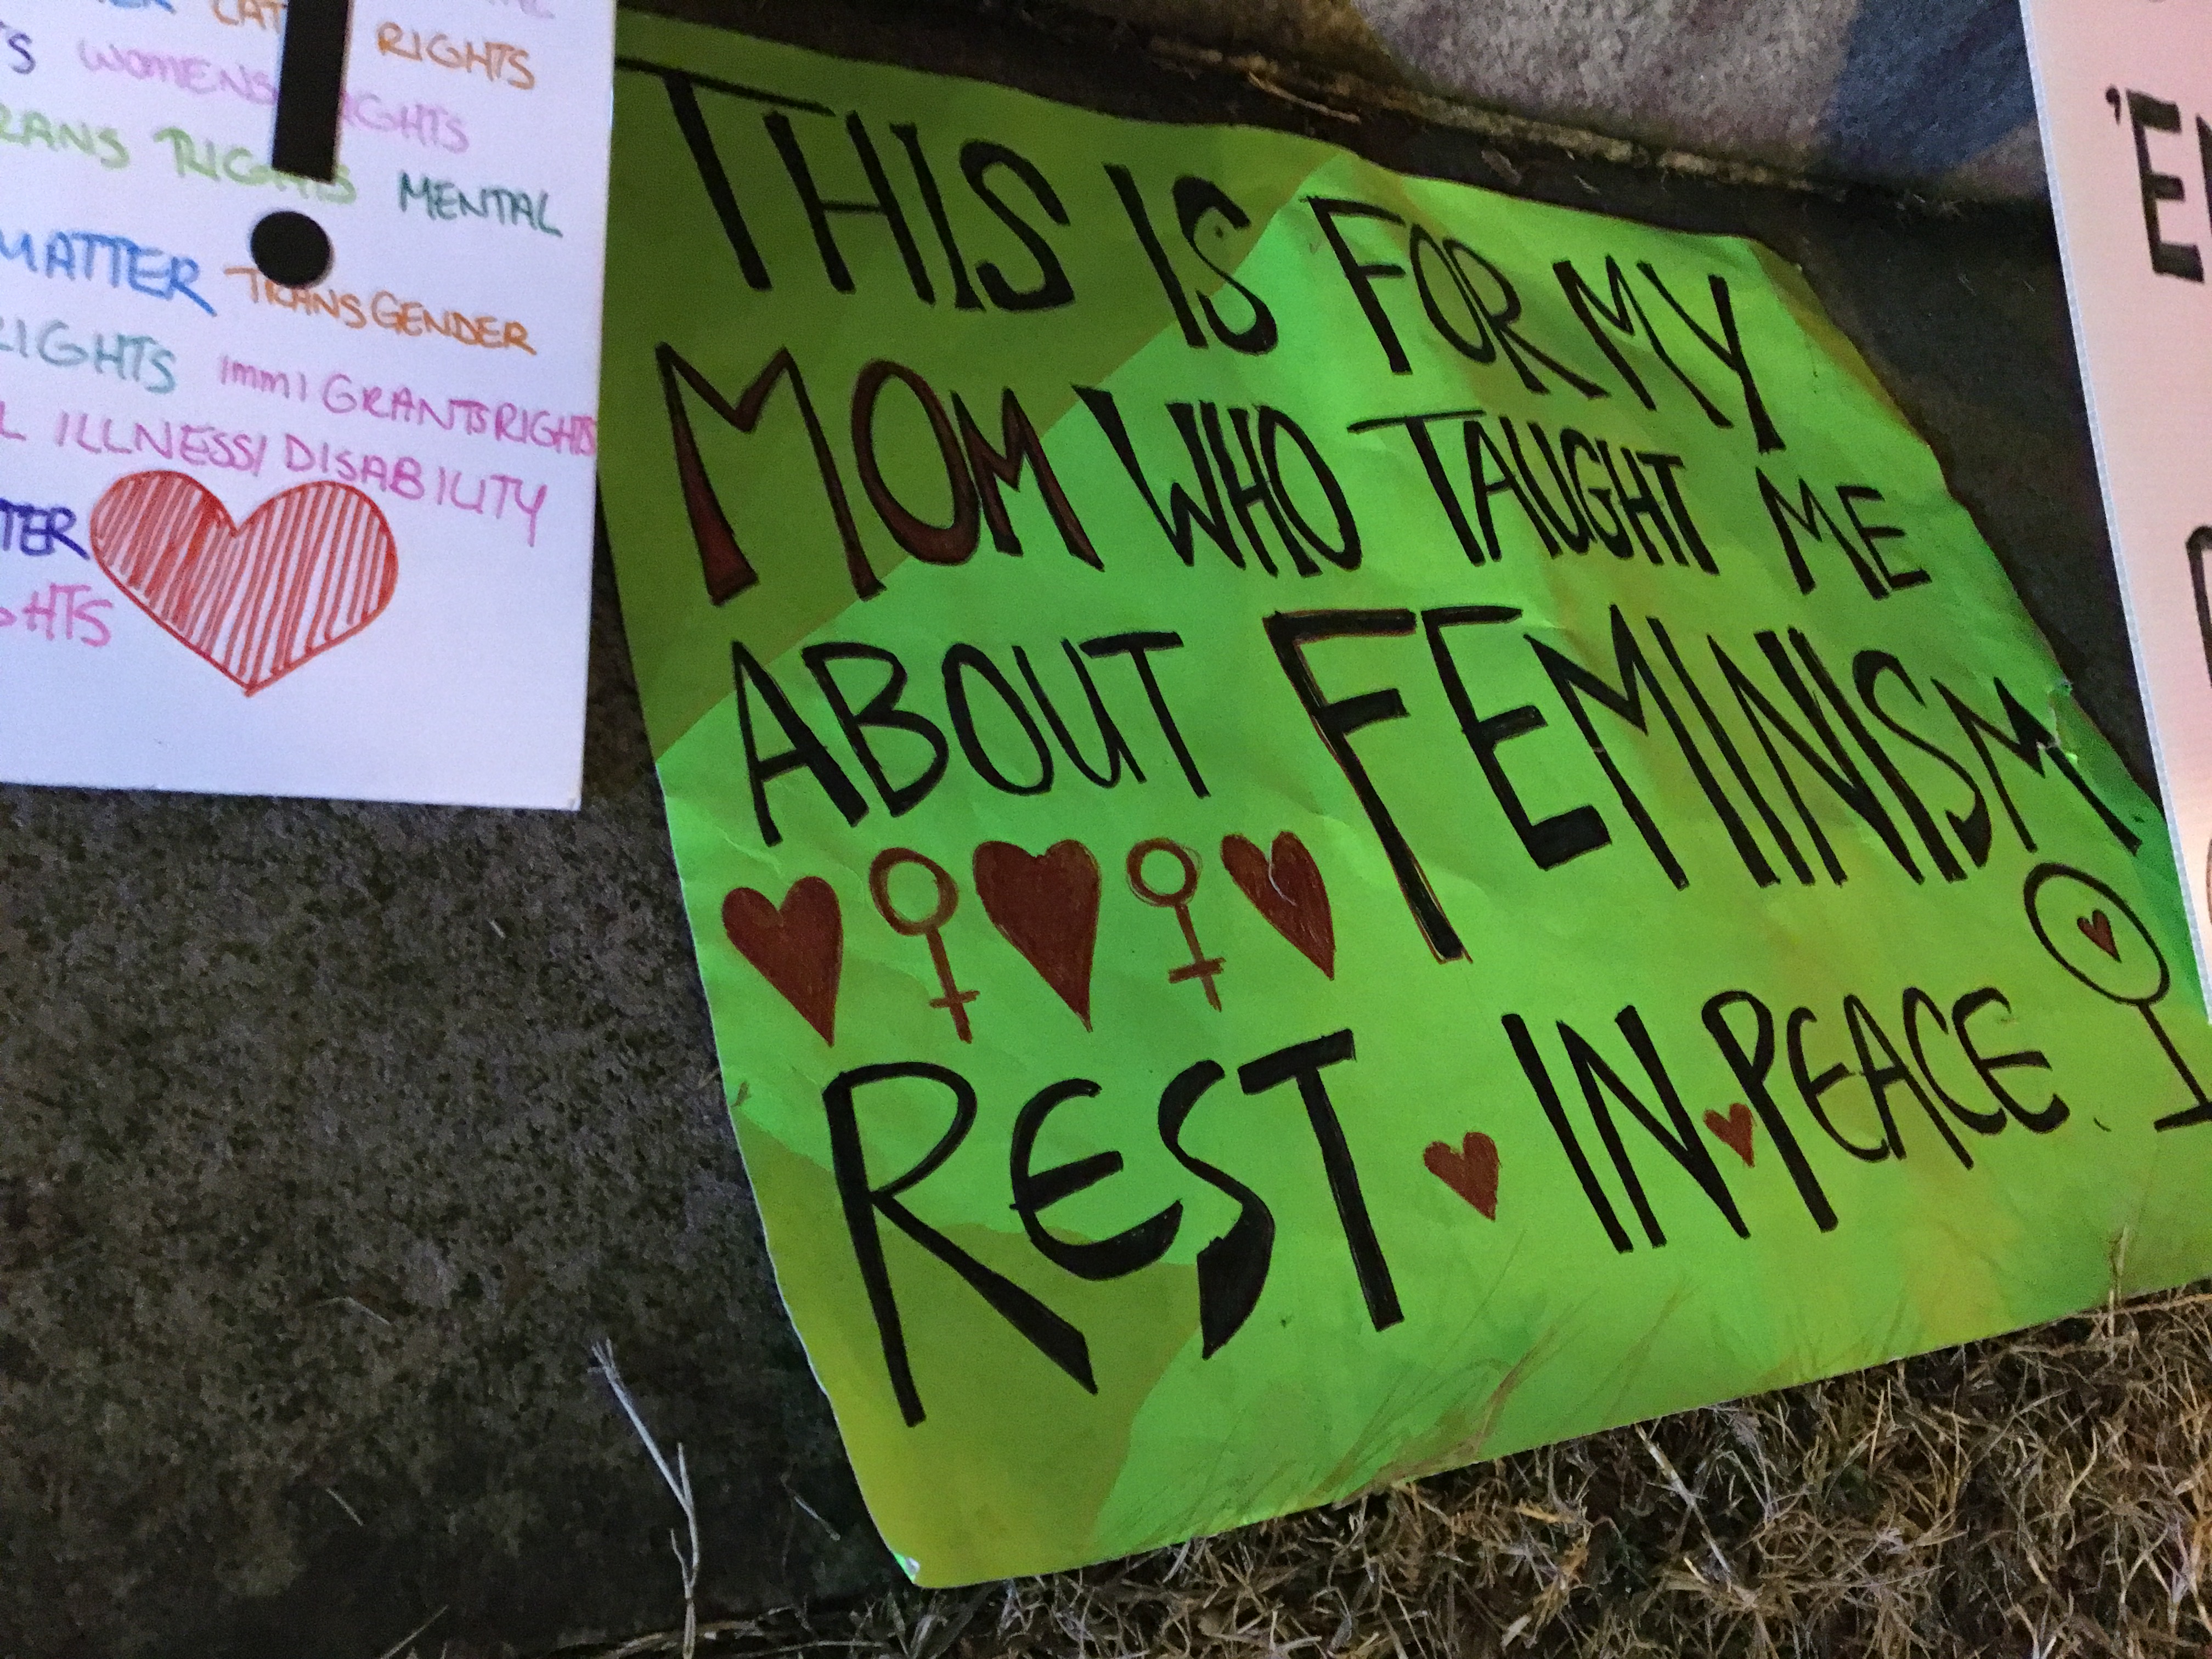 RIGHTS
WOMENS RIGHTS
TRANS RIGHTS MENTAL
MATTER TRANSGENDER
RIGHTS immiGRANTSRIGHTS
ILLNESS/DISABILITY
THIS IS FOR MY
MOM WHO TAUGHT ME
ABOUT FEMINISM
REST IN PEACE